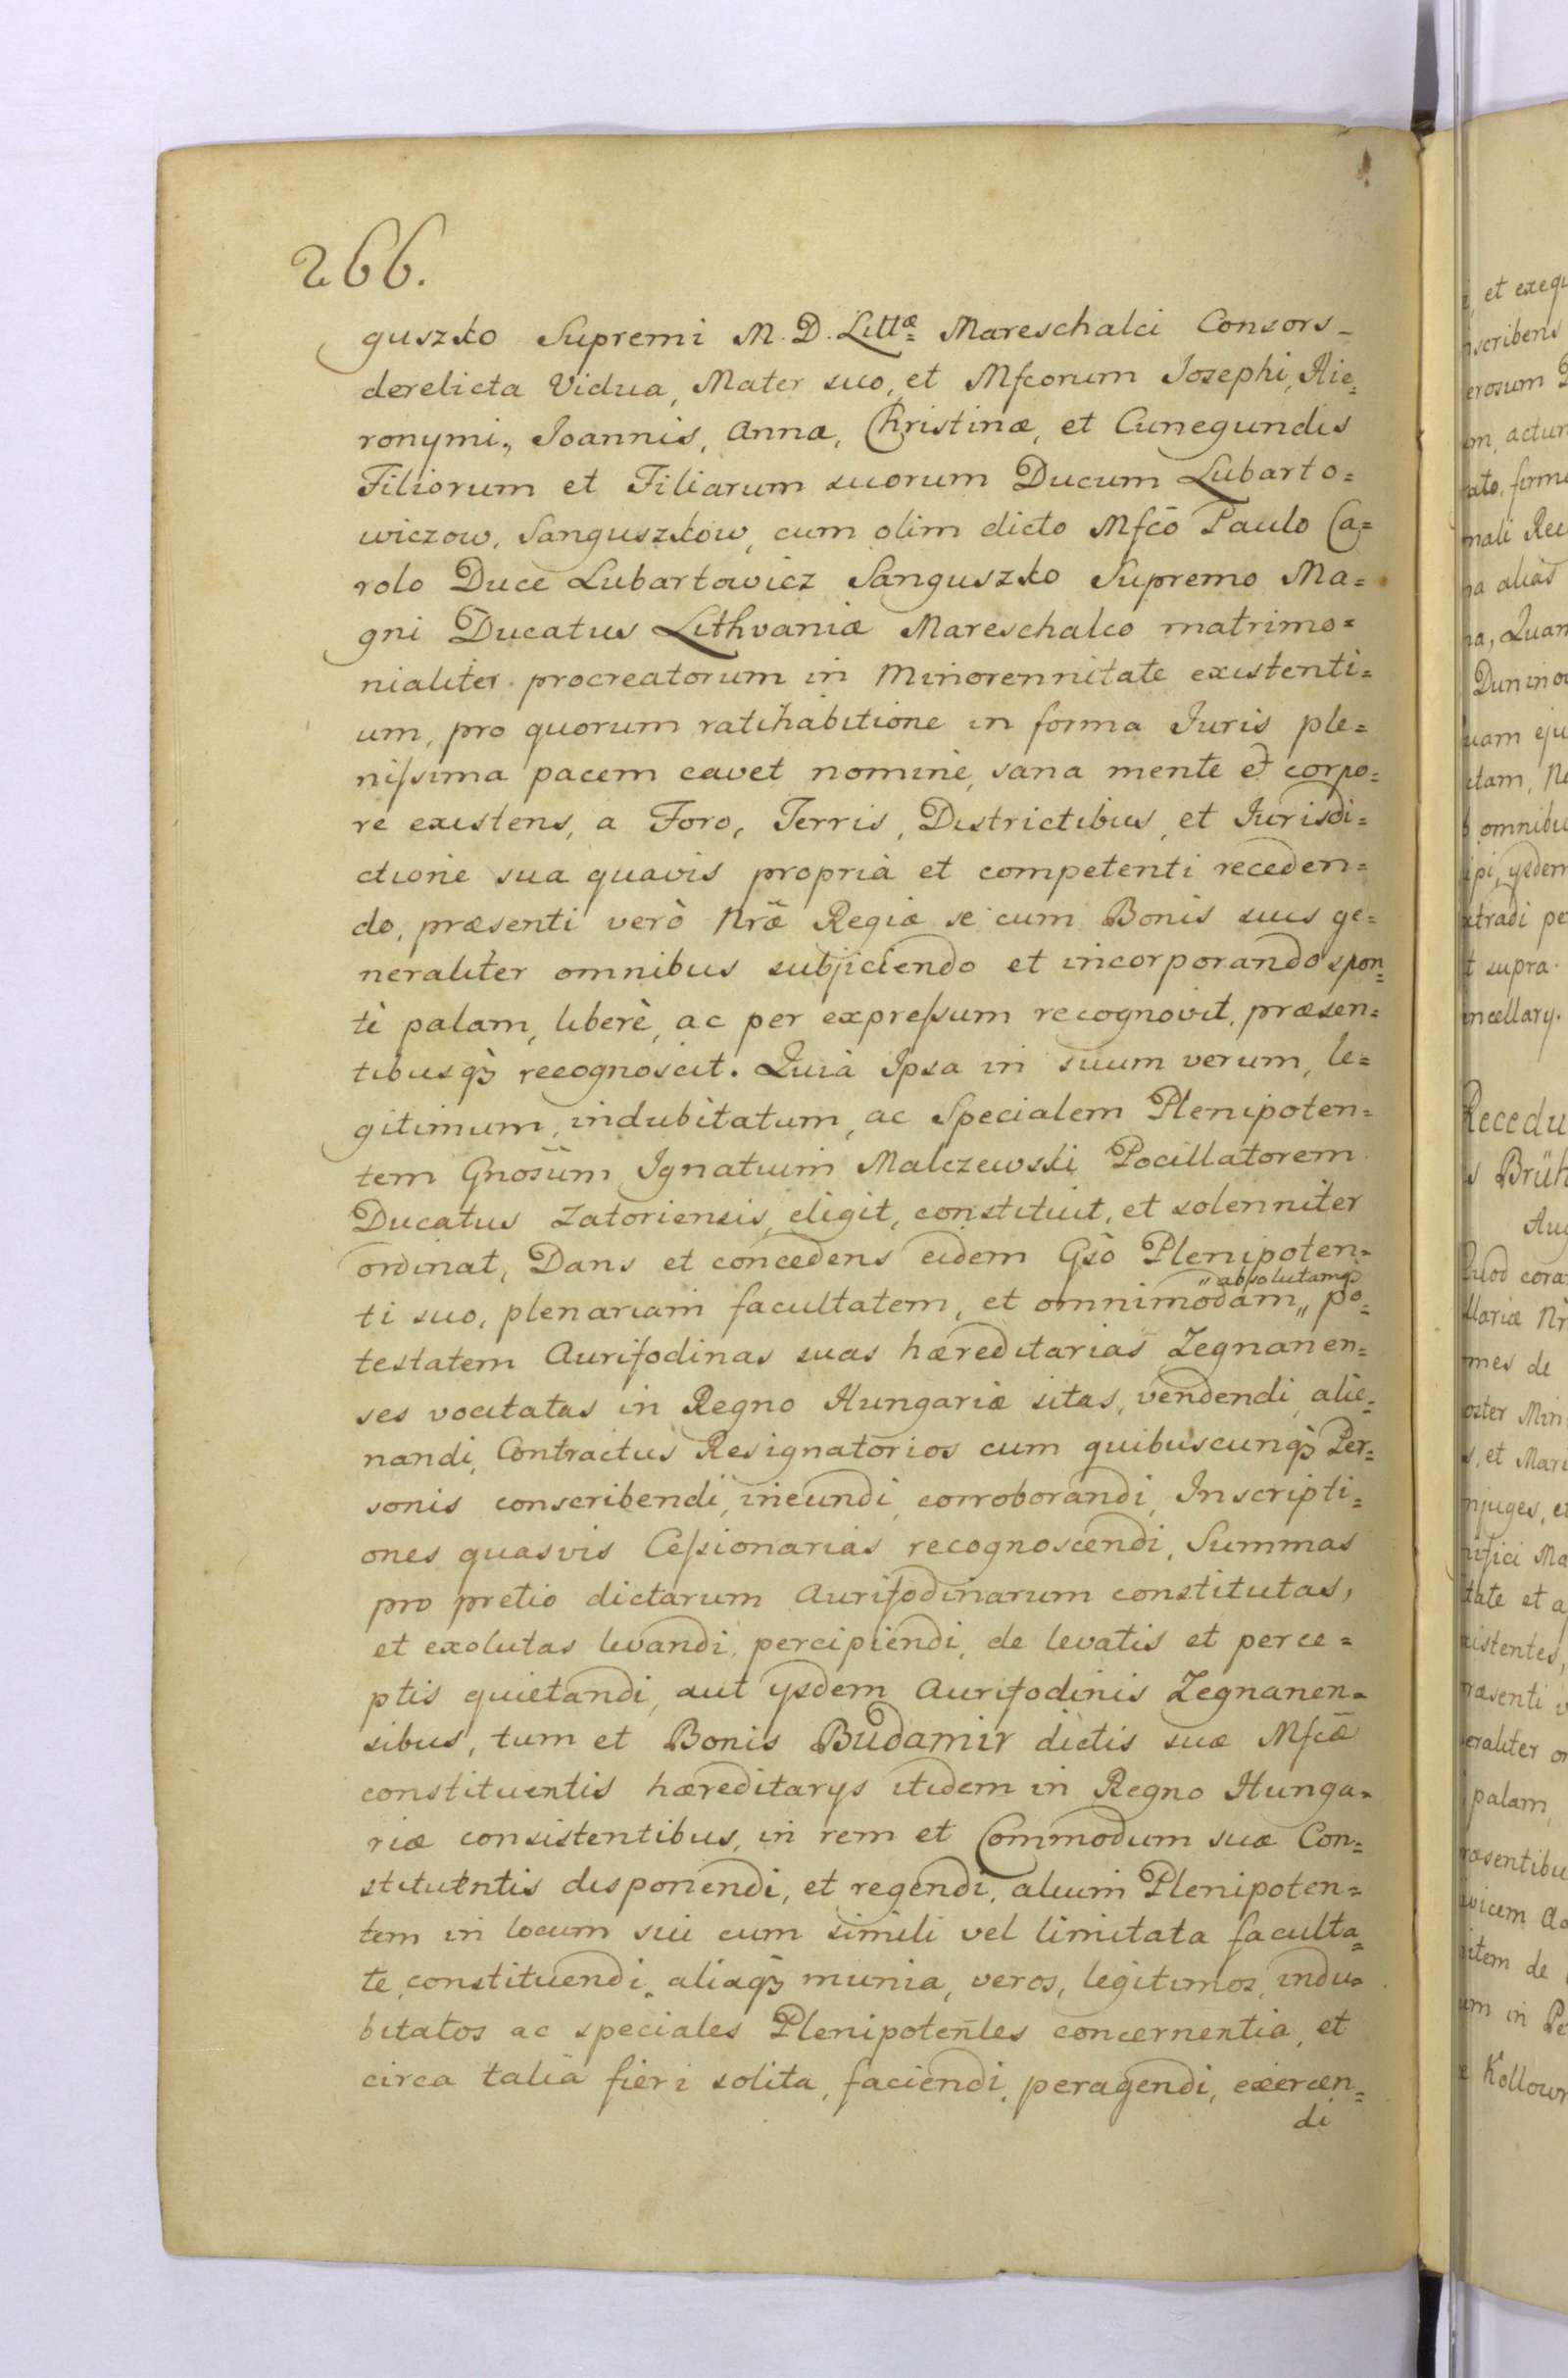 266.
guszko Supremi M. D. Littæ Mareschalci Consors-
derelicta Vidua, Mater suo, et Mfcorum Josephi, Hie=
ronymi, Joannis, Annæ, Christinæ, et Cunegundis
Filiorum et Filiarum suorum Ducum Lubarto=
wiczow, Sanguszkow, cum olim dicto Mfcō Paulo Ca=
rolo Duce Lubartowicz Sanguszko Supremo Ma=
gni Ducatus Lithvaniæ Mareschalco matrimo=
nialiter procreatorum in Minorennitate existenti=
um, pro quorum ratihabitione in forma Juris ple=
nissima pacem cavet nomine, sana mente et corpo=
re existens, a Foro, Terris, Districtibus, et Jurisdi=
ctione sua quavis propria et competenti receden=
do, præsenti verò Nrã Regiæ se cum Bonis suis ge=
neraliter omnibus subjiciendo et incorporando spon=
tè palam, liberè, ac per expressum recognovit, præsen=
tibusqꝫ recognoscit. Quia Ipsa in suum verum, le=
gitimum, indubitatum, ac Specialem Plenipoten=
tem Gnosūm Ignatium Malczewski Pocillatorem
Ducatus Zatoriensis, eligit, constituit, et solenniter
ordinat, Dans et concedens eidem Gsō Plenipoten=
ti suo, plenariam facultatem, et omnimodam „absolutamqꝫ„ po=
testatem Aurifodinas suas hæreditarias Zegnanen=
ses vocitatas in Regno Hungariæ sitas, vendendi, alie=
nandi, Contractus Resignatorios cum quibuscunqꝫ Per=
sonis conscribendi, ineundi, corroborandi, Inscripti=
ones quasvis Cessionarias recognoscendi, Summas
pro pretio dictarum Aurifodinarum constitutas,
et exolutas levandi, percipiendi, de levatis et perce=
ptis quietandi, aut ysdem Aurifodinis Zegnanen=
sibus, tum et Bonis Budamir dictis suæ Mfcæ
constituentis hæreditarys itidem in Regno Hunga=
riæ consistentibus, in rem et Commodum suæ Con=
stituentis disponendi, et regendi, alium Plenipoten=
tem in locum sui cum simili vel limitata faculta=
te, constituendi, aliaqꝫ munia, veros, legitimos, indu=
bitatos ac speciales Plenipotentes concernentia, et
circa talia fieri solita, faciendi, peragendi, exercen=
di
et exequ
scribens
erosum
actum
nali Rec
alias
Quam
Duninow
uam eju
omnibu
ysdem
supra.
ncellary.
Recedu
Brüh
Aug
uod cora
llariæ Nr
mes de
oster Min
et Mari
njuges, et
tate et a
istentes,
ræsenti v
eraliter om
palam
ræsentibu
item de
in Pe
Kollowr